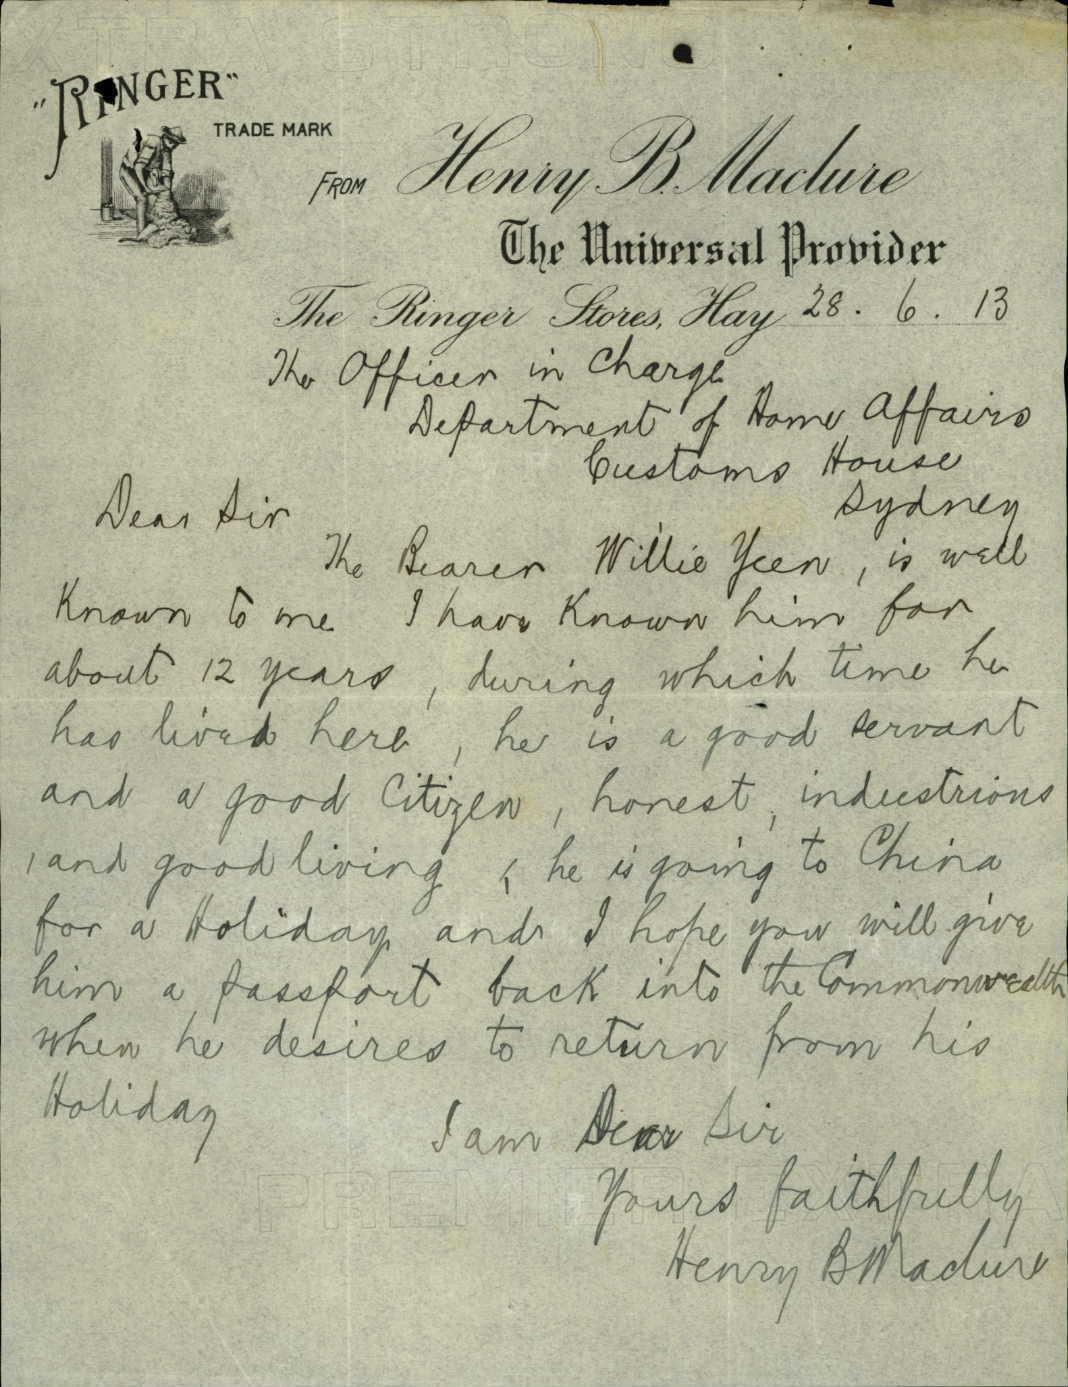 "RINGER"
TRADE MARK
FROM Henry B. Maclure
The Universal Provider
The Ringer Stores, Hay 28. 6. 13
The Officer in Charge
Department of Home Affairs
Customs House
Sydney
Dear Sir
The Bearer Willie Yeen, is well
Known to me I have Known him for
about 12 years, during which time he
has lived here, he is a good servant
and a good Citizen, honest, industrious
, and good living, he is going to China
for a Holiday and I hope you will give
him a passport back into the Commonwealth
when he desires to return from his
Holiday
I am Dear Sir
Yours faithfully
Henry B Maclure